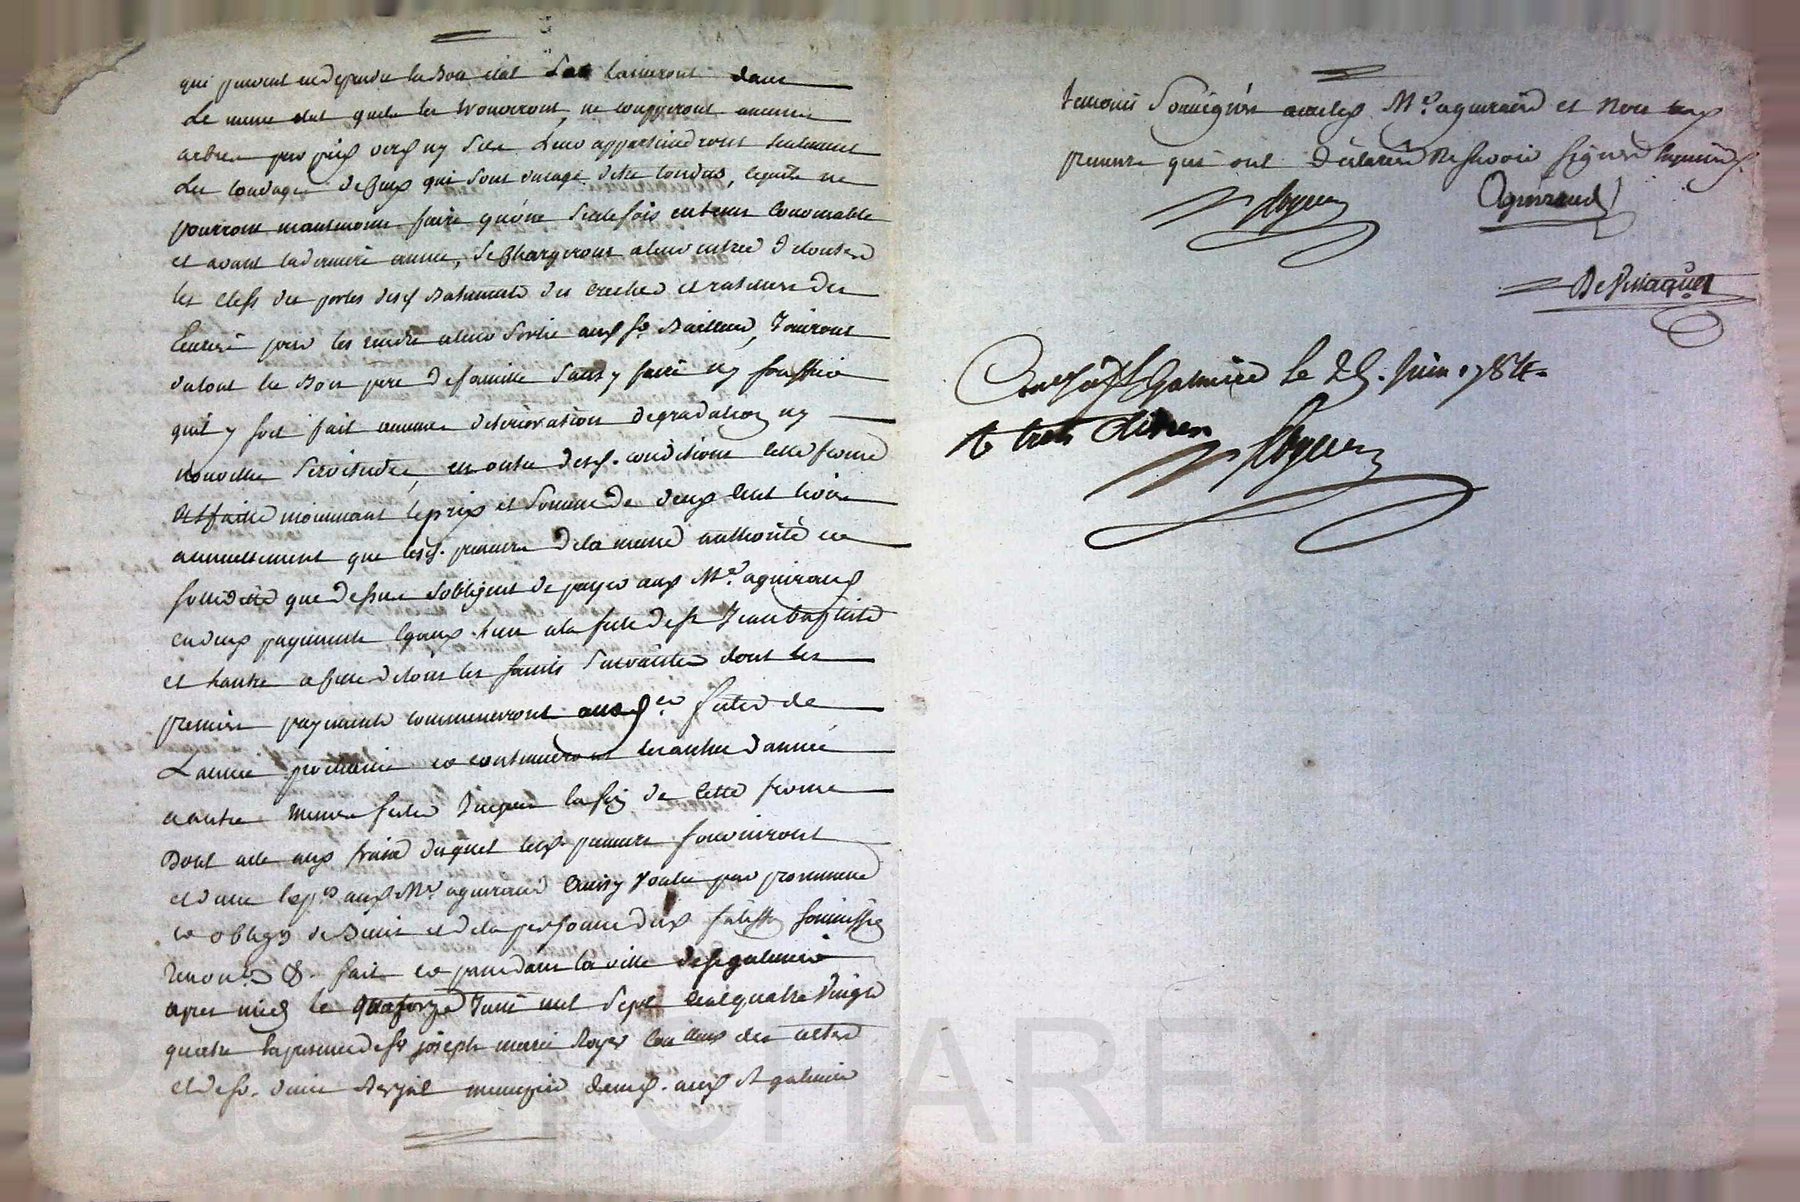 qui peuvent en dependre en bon etat
Le meme etat quils les trouveront, ne coupperont aucuns
arbres par pieds vers ny secs leur appartiendront seulement
Les tondages de ceux qui sont d'usage d'etre tondus, lequels ne
pourront neantmoins faire qu'une seule fois en tems convenable
et avant la derniere année, se chargeront a leur entrée de toutes
les clefs des portes desd. Batiments des creches et rateliers des
Ecuries pour les rendre a leur sortie auxd. Srs. Bailleurs, Jouiront
du tout en Bon pere de famille sans y faire ny souffrir
quil y soit fait aucune deterioration degradation ny
nouvelle servitudes, en outre desd. conditions cette ferme
est faitte moiennant le prix et somme de deux cent livres
annuellement que lesd. preneurs de la meme authorité et
solidité que dessus s'obligent de payer aud. Me. aguiraud
en deux payements egaux l'un a la fete de St. Jean baptiste
et l'autre a fete de tous les saints suivantes dont les
premiers payements commenceront auxd. fetes de
L'année prochaine et continueront les autres d'année
a autre memes fetes Jusques la fin de cette ferme
Dont acte aux frais duquel lesd. preneurs fourniront
et d'une Expon. aud. Me. aguiraud Ainsy voulu par promesse
et obligon de Biens
Renon. &. fait et passé dans la ville de St galmier
apres midy le quatorze Juin mil sept cent quatre vingt
quatre En presence de Sr. joseph marie Royer des actes
et de Sr. menuizier demt. aud. St galmier
temoins soussignés avec led. Me. aguiraud et non les
preneurs qui ont déclarés ne scavoir signer Enquis.
Royer Aguiraud
Controllé a St Galmier le 25. Juin 1784.
Royer
Pascal CHAREYRON